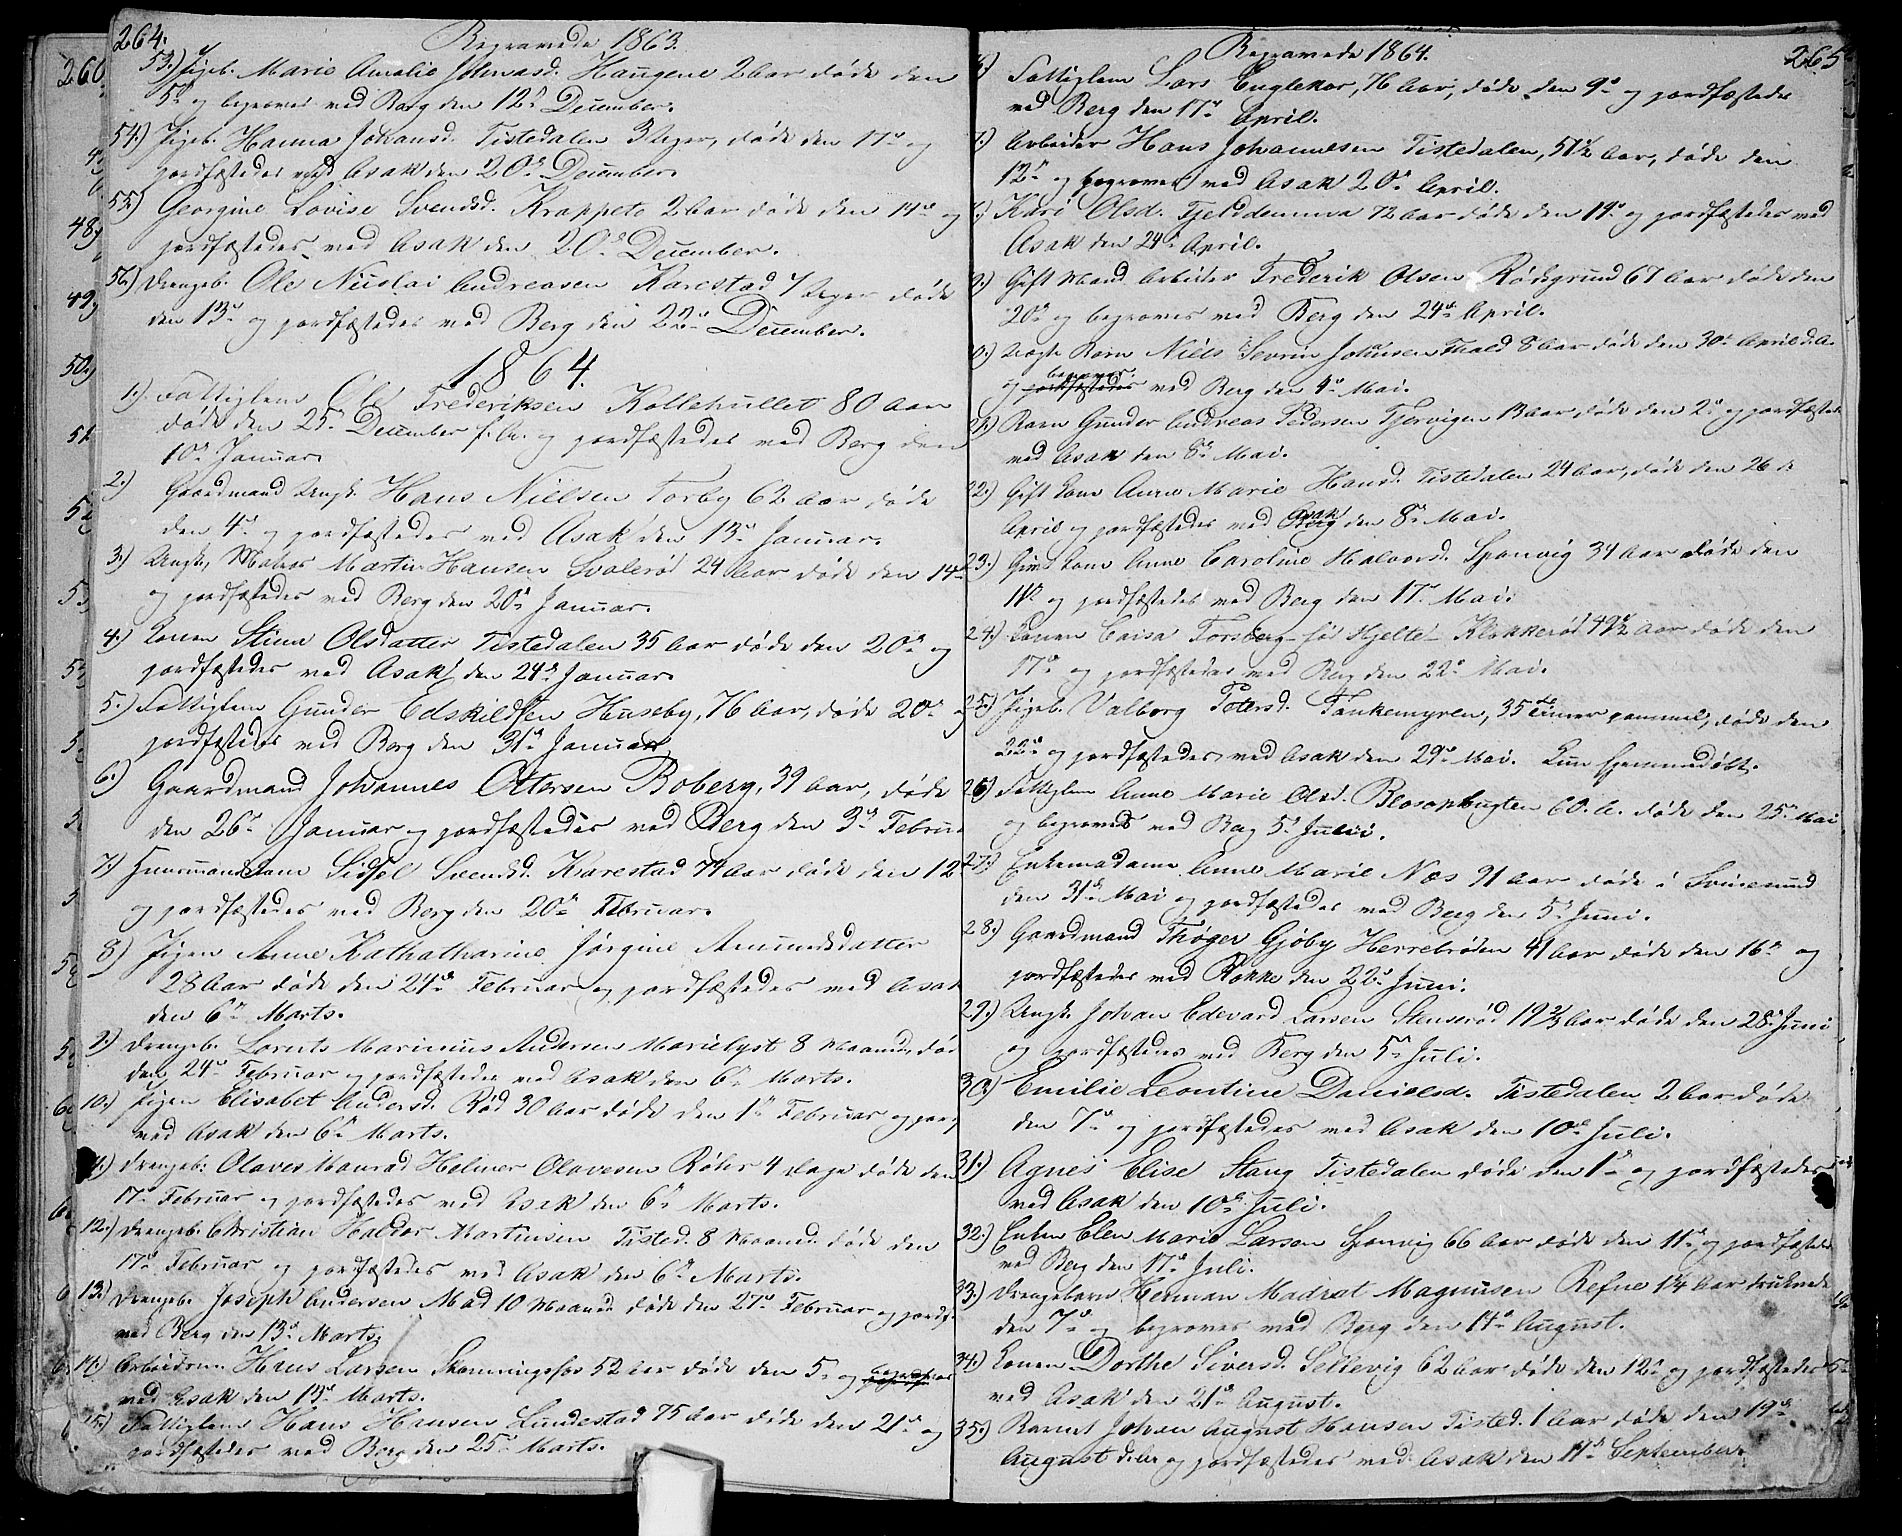 264.
Begravede 1863.
53.) Pigeb. Marie Amalie Johnasd. Haugene 2 Aar døde den
5te og begroves ved Berg den 12te December.
54.) Pigeb. Hanna Johansd. Tistedalen 3 Uger, døde den 17de og
jordfæstedes ved Asak den 20de December.
55.) Georgine Lovise Svendsd. Krappeto 2 Aar døde den 14de og
jordfæstedes ved Asak den 20de December.
56.) Drengeb. Ole Nicolai Andreasen Karrestad 7 Uger døde
den 13de og jordfæstedes ved Berg den 22de December.
1864.
1.) Fattiglem Ole Frederiksen Kollehullet 80 Aar
døde den 25de December f. A. og jordfæstedes ved Berg den
10de Januar.
2.) Gaardmand Ungk. Hans Nielsen Torby 62 Aar døde
den 4de og jordfæstedes ved Asak den 13de Januar.
3.) Ungk. Matros Martin Hansen Svalerød 24 Aar døde den 14de
og jordfæstedes ved Berg den 20de Januar.
4.) Konen Stina Olsdatter Tistedalen 35 Aar døde den 20de og
jordfæstedes ved Asak den 24de Januar.
5.) Fattiglem Gunder Edskildsen Huseby, 76 Aar, døde 20de og
jordfæstedes ved Berg den 31te Januar
6.) Gaardmand Johannes Ottersen Boberg, 39 Aar, døde
den 26de Januar og jordfæstedes ved Berg den 3de Februar
7.) Huusmandskone Sidsel Svendsd. Karrestad 74 Aar døde den 12te
og jordfæstedes ved Berg den 20de Februar.
8.) Pigen Anne Kathatharine Jørgine Amundsdatter
28 Aar døde den 24de Februar og jordfæstedes ved Asak
den 6te Marts.
9.) Drengeb. Lorents Marinius Andersen Marielyst 8 Maaneder død
den 24de Februar og jordfæstedes ved Asak den 6te Marts.
10.) Pigen Elisabet Andersd. Rød 30 Aar døde den 1te Februar og jordf.
ved Asak den 6te Marts.
11.) Drengeb. Olaves Monrad Helmer Olavesen Røhr 4 Dage døde den
17de Februar og jordfæstedes ved Asak den 6te Marts.
12.) Drengeb. Christian Haldor Martinsen Tisted. 8 Maaned. døde den
17de Februar og jordfæstedes ved Asak den 6te Marts.
13.) Drengeb. Joseph Andersen Mød 10 Maaned. døde den 27de Februar og jordf.
ved Berg den 13de Marts.
14.) Arbeidsm. Hans Larsen Skonningsfos 52 Aar døde den 5te og begroves
ved Asak den 13de Marts.
15.) Fattiglem Hans Hansen Lundestad 75 Aar døde den 21de og
jordfæstedes ved Berg den 25de Marts.
Begravede 1864.
265
6) Fattiglem Lars Englekor, 76 Aar, døde den 9de og jordfæstedes
ved Berg den 17de April.
7.) Arbeider Hans Johannesen Tistedalen, 51½ Aar, døde den
12te og begroves ved Asak 20de April.
Kari Olsd. Fjelddemma 72 Aar døde den 19de og jordfæstedes ved
Asak den 24de April.
9.) Gift Mand Arbeider Frederik Olsen Rødsgrund 67 Aar døde den
20de og begroves ved Berg den 24de April.
0.) Uægte Barn Niels Severin Johnsen 8 Aar døde den 30te April d. A.
og begroves ved Berg den 4de Mai.
21.) Barn Gunder Andreas Pedersen Fjervigen 13 Aar, døde den 2de og jordfæstedes
ved Asak den 8de Mai.
22.) Gift Kone Anne Marie Hansd. Tistedalen 24 Aar, døde den 26de
April og jordfæstedes ved Asak den 8de Mai.
23.) Gift Kone Anne Caroline Halvorsd. Sponvig 34 Aar døde den
11te og jordfæstedes ved Berg den 17de Mai.
24.) Konen Caisa Forsberg fød Hjelte Klokkerød 49½ Aar døde den
17de og jordfæstedes ved Berg den 22de Mai.
25.) Pigeb. Valborg Petersd. Tankemyren, 35 Timer gammel, døde den
22de og jordfæstedes ved Asak den 29de Mai. Kun hjemmedøbt.
26) Fattiglem Anne Marie Olsd. Blasopbugten 60. A. døde den 25de Mai
og begroves ved Berg 5te Juni.
27.) Enkemadame Anne Marie Næs 91 Aar døde i Svinesund
den 31te Mai og jordfæstedes ved Berg den 5te Juni.
28.) Gaardmand Thøger Gjøby Herrebrøden 41 Aar døde den 16de og
jordfæstedes ved Rokke den 22de Juni.
29.) Ungk. Johan Edevard Larsen Stenserød 19⅔ Aar døde den 28de Juni
og jordfæstedes ved Berg den 5te Juli.
30.) Emilie Leontine Danielsd. Tistedalen 2 Aar døde
den 7de og jordfæstedes ved Asak den 10de Juli.
31.) Agnes Elise Stang Tistedalen døde den 1te og jordfæstedes
ved Asak den 10de Juli.
32.) Enken Elen Marie Larsen Sponvig 66 Aar døde den 11te og jordfæstedes
ved Berg den 17de Juli.
33.) Drengebarn Herman Madrat Magnusen Refne 1¼ Aar druknede
den 7de og begroves ved Berg den 14de August.
34.) Konen Dorthe Siversd. Sellevig 62 Aar døde den 12te og jordfæstedes
ved Asak den 21de August.
35.) Barnet Johan August Hansen Tisted. 1 Aar døde den 19de
August d. A. og jordfæstedes ved Asak den 11te September.
260
48.)
49.)
50.)
51